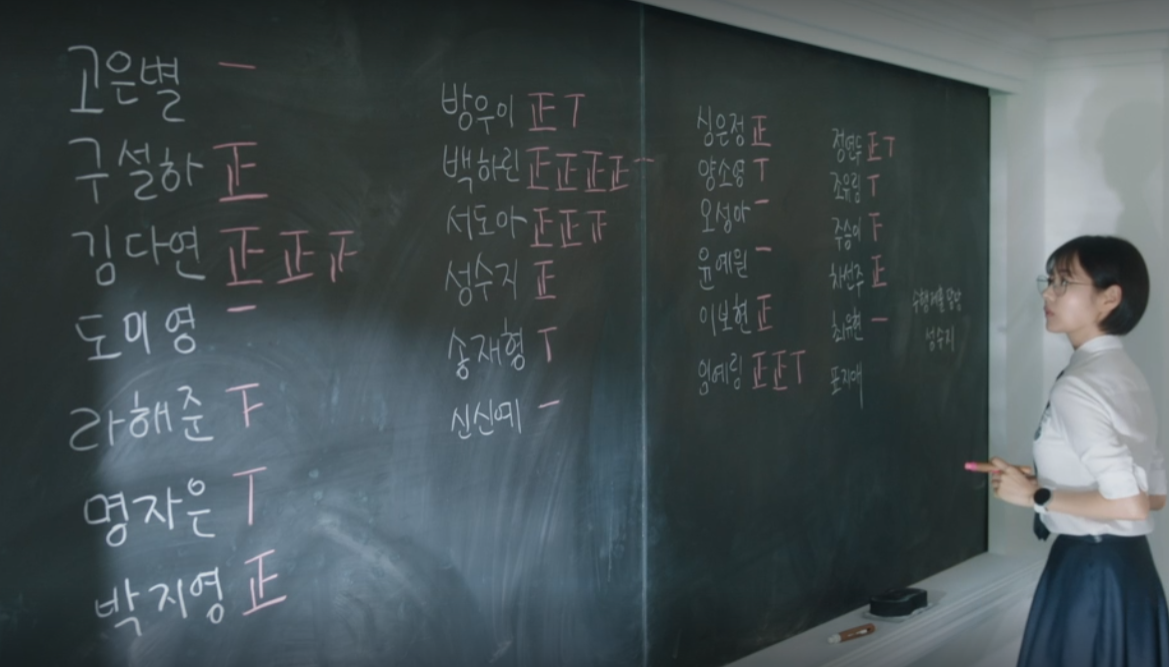 고은별 一
구설하 正
김다연 正正下
도미영 一
라해준 下
명자은 丅
박지영 正
방우이 正丅
백하린 正正正正一
서도아 正正下
성수지 正
송재형 丅
신신예 一
심은정 正
양소영 丅
오성아 一
윤예원 一
이보현 正
임예림 正正丅
정연두 正丅
조유림 丅
주승이 下
차선주 正
최유현 一
표지애
성수지